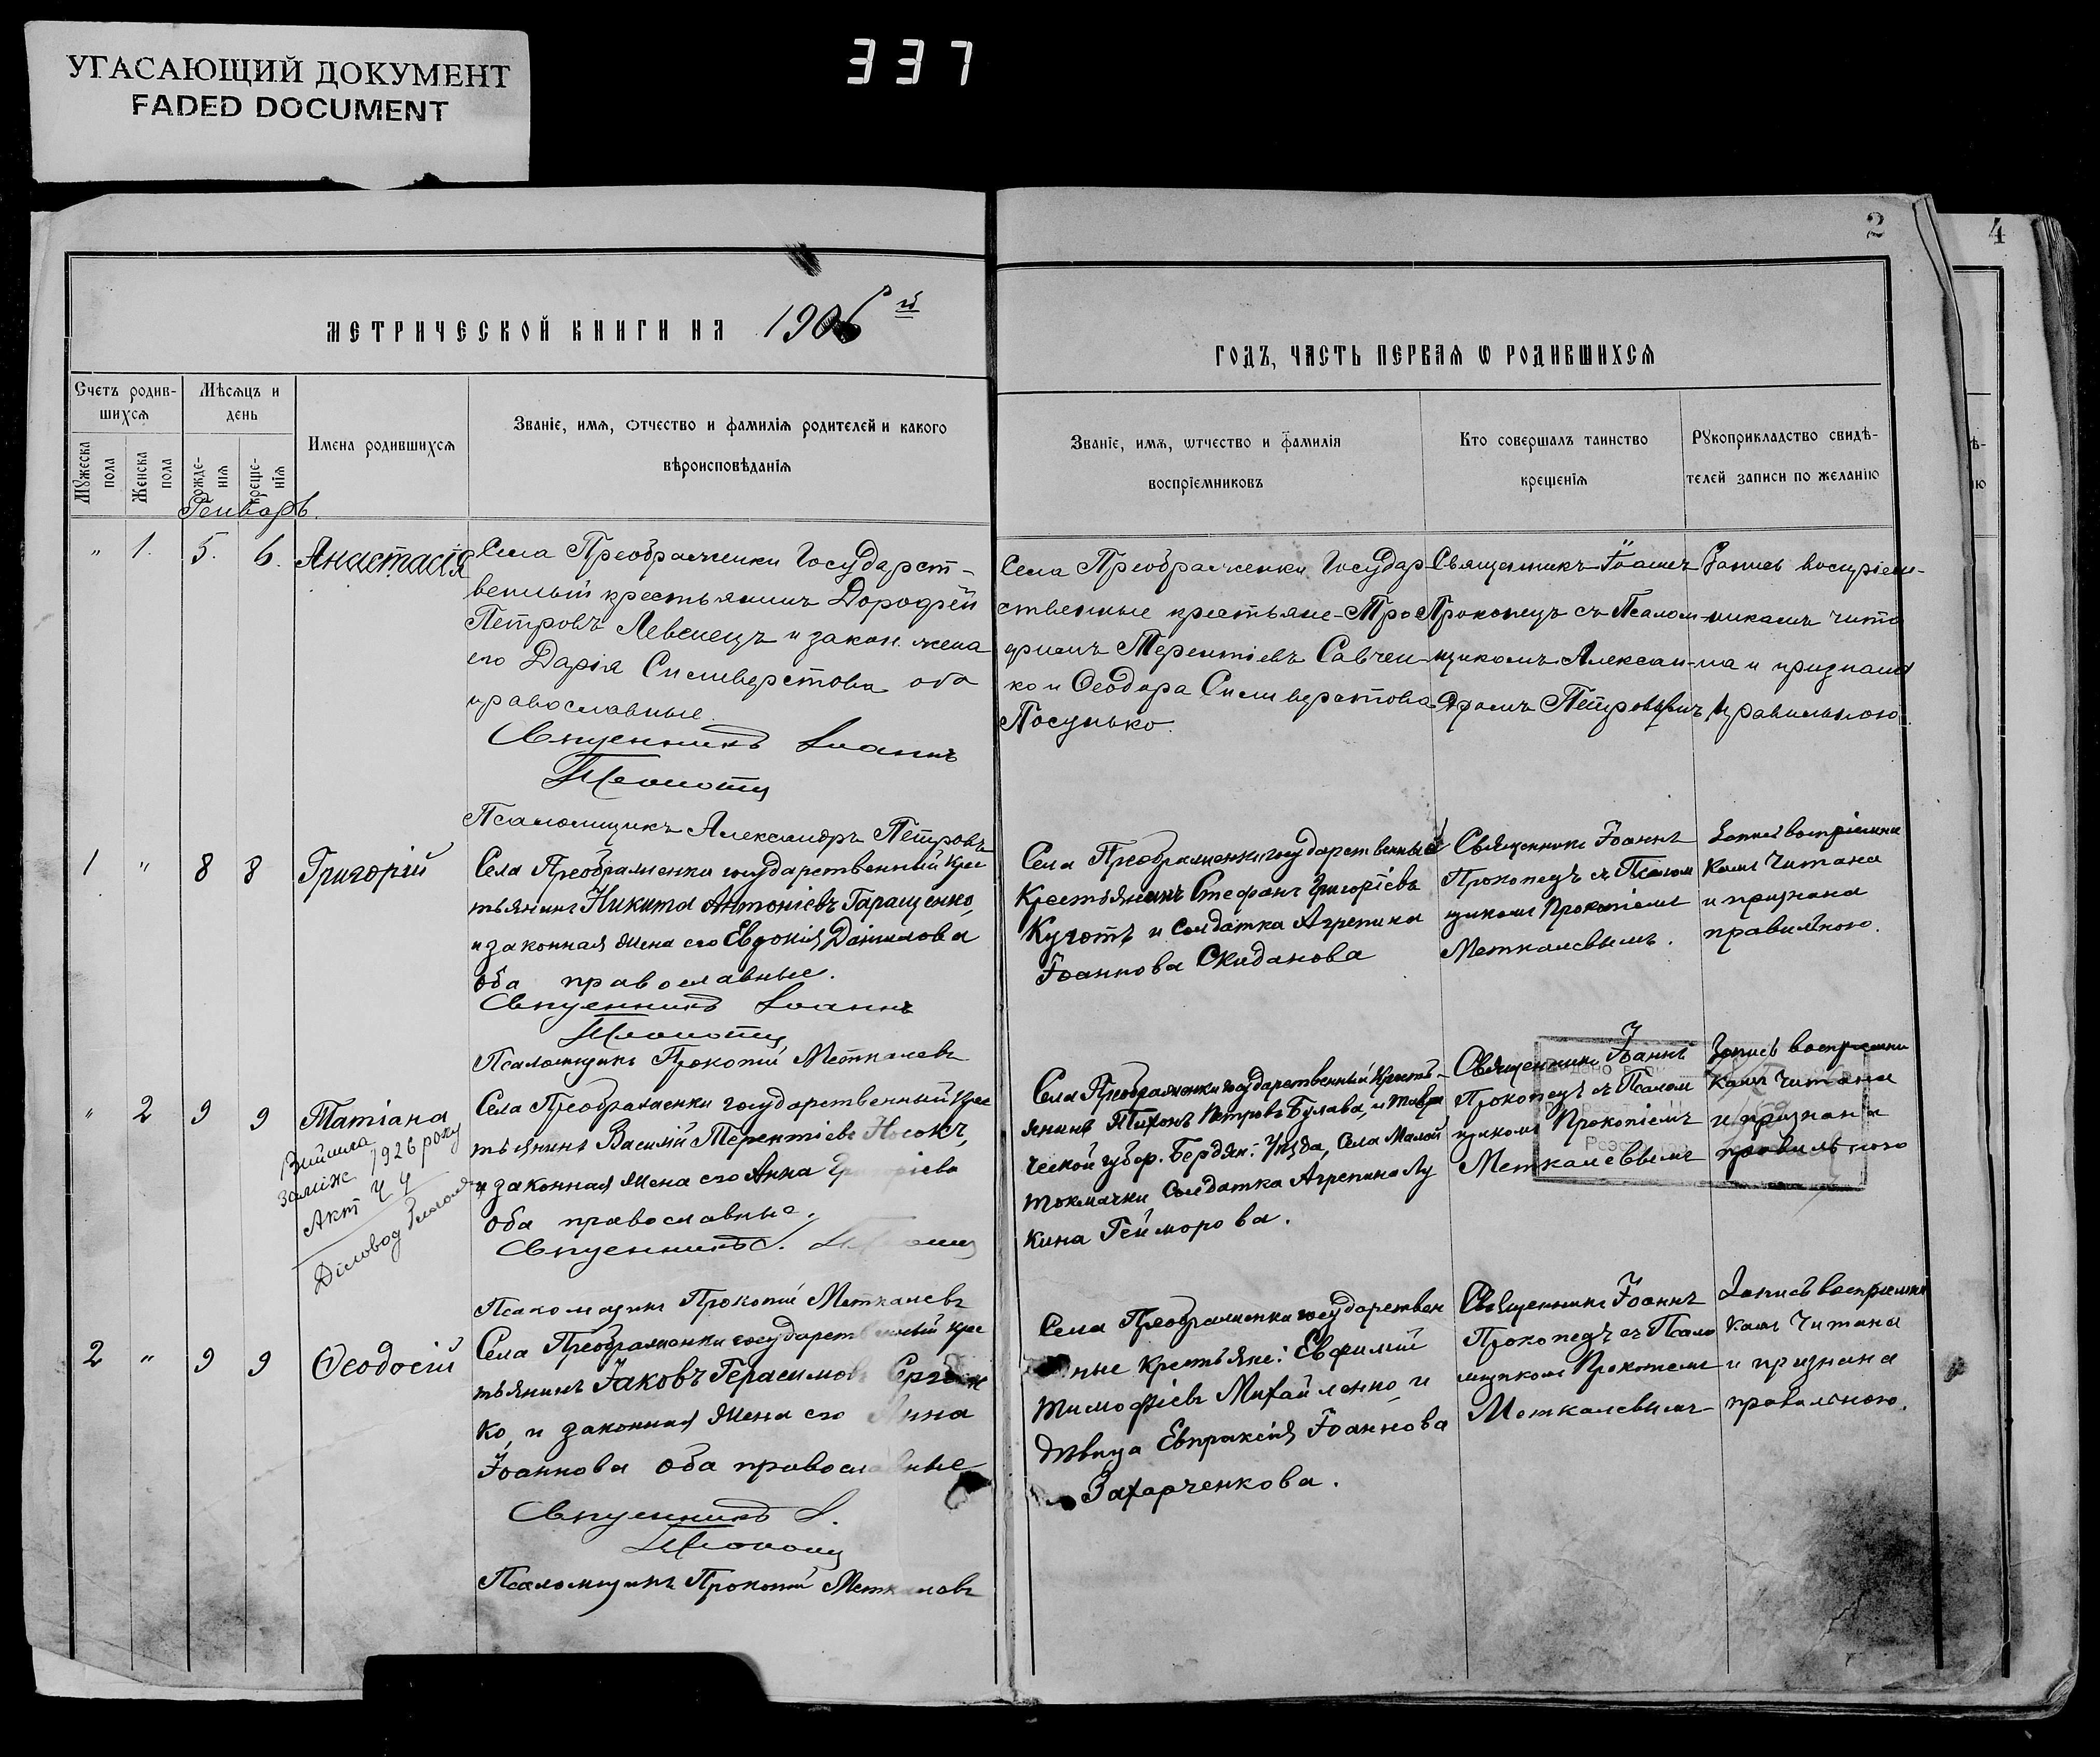 УГАСАЮЩИЙ ДОКУМЕНТ
FADED DOCUMENT
337
2
4
МЕТРИЧЕСКОЙ КНИГИ НА 1906 й
ГОДЪ, ЧАСТЬ ПЕРВАЯ Ѡ РОДИВШИХСЯ
Счетъ родив-
шихся
Мѣсяцъ и
день
Мужеска
пола
Женска
пола
рожде-
нія
креще-
нія
Имена родившихся
Званіе, имя, отчество и фамилія родителей и какого
вѣроисповѣданія
Званіе, имя, ѡтчество и фамилія
воспріемниковъ
Кто совершалъ таинство
крещенія
Рукоприкладство свидѣ-
телей записи по желанію
Генварь.
" 1. 5. 6. Анастасія
Села Преображенки Государст-
венный крестьянинъ Дорофей
Петровъ Левенецъ и закон. жена
его Дарія Силиверстова оба
православные.
Священникъ Іоаннъ
Псаломщикъ Александръ Петровъ
Села Преображенки Государ-
ственные крестьяне Тро-
фимъ Терентіевъ Савчен-
ко и Ѳеодора Силиверстова
Посунько.
Священникъ Іоаннъ
Прокопецъ съ Псалом-
щикомъ Алексан-
дромъ Петровымъ
Запись воспріем-
никамъ чита-
на и признана
правильною.
1 " 8 8 Григорій
Села Преображенки государственный крес
тьянинъ Никита Антоніевъ Гаращенко,
и законная жена его Евдокія Даніилова
оба православные.
Священникъ Іоаннъ
Псаломщикъ Прокопій Меткалевъ
Села Преображенки государственный
Крестьянинъ Стефанъ Григоріевъ
и солдатка Агрепина
Іоаннова Скиданова
Священникъ Іоаннъ
Прокопецъ съ Псалом
щикомъ Прокопіемъ
Меткалевымъ.
Запись воспріемни
камъ Читана
и признана
правильною.
" 2 9 9 Татіана
Вийшла
заміж 1926 року
Акт Ч 4
Діловод
Села Преображенки государственный крес
тьянинъ Василій Терентіевъ Носокъ,
и законная жена его Анна Григоріева
оба православные.
Священникъ І.
Псаломщикъ Прокопій Меткалевъ
Села Преображенки государственный Кресть-
янинъ Тихонъ Петровъ Булава, и Таври
ческой губер. Бердян: Уѣзда, Села Малой
токмачки Солдатка Агрепина Лу
кина Гейморова.
Священникъ Іоаннъ
Прокопецъ съ Псалом
щикомъ Прокопіемъ
Меткалевымъ
Запись воспріемни
камъ Читана
и признана
правильною
2 " 9 9 Ѳеодосій
Села Преображенки государственный крес
тьянинъ Іаковъ Герасимовъ
ко, и законная жена его Анна
Іоаннова оба православные
Священникъ І.
Псаломщикъ Прокопій Меткалевъ
Села Преображенки государствен
ные крестьяне: Евфимій
тимофѣевъ Михайленко, и
дѣвица Евпраксія Іоаннова
Захарченкова.
Священникъ Іоаннъ
Прокопецъ съ Псало
мщикомъ Прокопіемъ
Меткалевымъ
Запись воспріемни
камъ Читана
и признана
правильною.